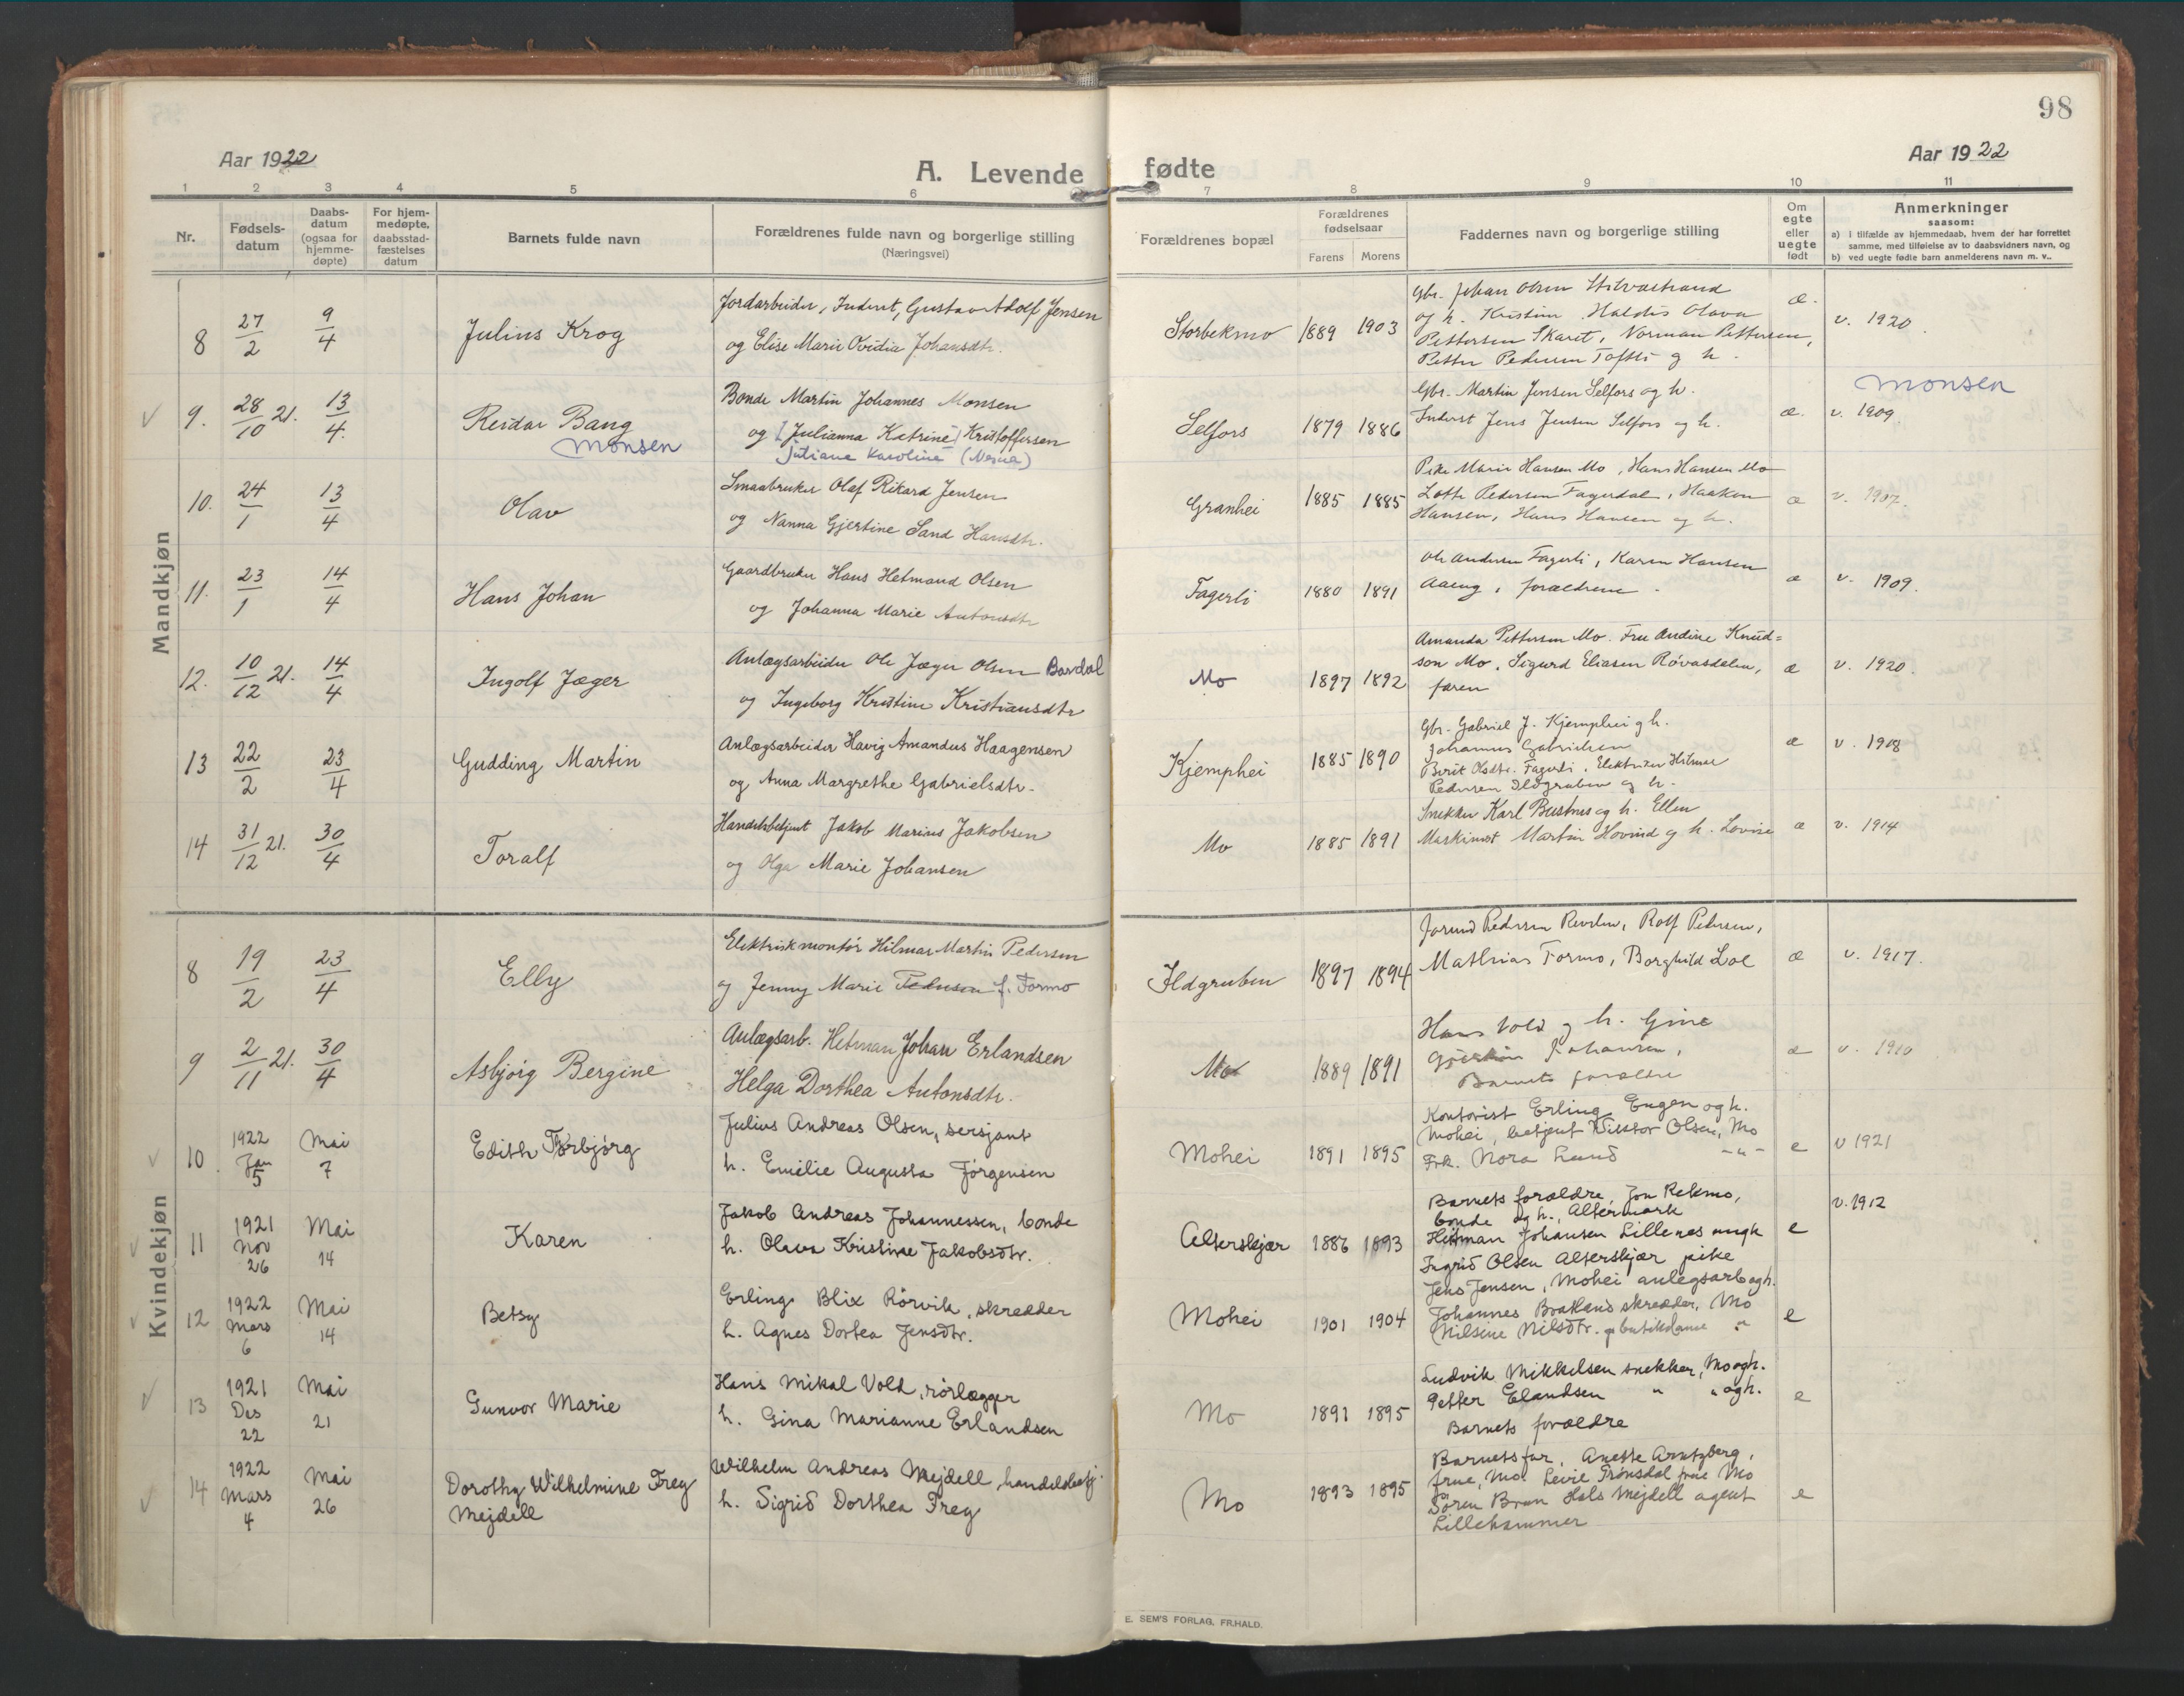 98
Aar 1922
A. Levende fødte
Aar 1922
1 2 3 4 5 6 7 8 9 10 11
Nr.
Fødsels-
datum
Daabs-
datum
(ogsaa for
hjemme-
døpte)
For hjem-
medøpte,
daabsstad-
fæstelses
datum
Barnets fulde navn
Forældrenes fulde navn og borgerlige stilling
(Næringsvei)
Forældrenes bopæl
Forældrenes
fødselsaar
Farens Morens
Faddernes navn og borgerlige stilling
Om
egte
eller
uegte
født
Anmerkninger
saasom:
a) i tilfælde av hjemmedaab, hvem der har forrettet
samme, med tilføielse av to daabsvidners navn, og
b) ved uegte fødte barn anmelderens navn m. v..
Mandkjøn
8 27/2 9/4 Julius Krog
Jordarbeider, Inderst, Gustav Adolf Jensen
og Elise Marie Ovidia Johansdtr.
Storbekmo 1889 1903
Gbr. Johan Olsen
og h. Kristine Haldis Olava
Pettersen Skaret, Norman Pettersen,
Petter Pedersen Tofte og h.
æ. v. 1920.
9. 28/10 21. 13/4. Reidar Bang
Monsen
Bonde Martin Johannes Monsen
og [Julianna Katrine] Kristoffersen
Juliane Karoline (Nesna)
Selfors 1879 1886
Gbr. Martin Jensen Selfors og h.
Inderst Jens Jensen Selfors og h.
æ. v. 1909.
Monsen
10. 24/1 13/4 Olav
Smaabruker Olaf Rikard Jensen
og Nanna Gjertine Sand Hansdtr.
Granhei 1885 1885
Pike Marie Hansen Mo, Hans Hansen Mo
Lotte Pedersen Fagerdal, Haakon
Hansen, Hans Hansen og h.
æ v. 1907.
11. 23/1 14/4 Hans Johan
Gaardbruker Hans Hetmand Olsen
og Johanna Marie Antonsdtr
Fagerli 1880 1891
Ole Andersen Fagerli, Karen Hansen
Aaeng, forældrene.
æ v. 1909.
12. 10/12 21. 14/4 Ingolf Jæger
Anlægsarbeider Ole Jæger Olsen Bardal
og Ingeborg Kristine Kristiansdtr
Mo 1897 1892
Amanda Pettersen Mo. Fru Andine Knud=
son Mo, Sigurd Eliasen Røvasdalen,
faren
æ v. 1920.
13 22/2 23/4 Gudding Martin
Anlægsarbeider Havig Amandus Haagensen
og Anna Margrethe Gabrielsdtr.
Kjemphei 1885 1890
Gbr. Gabriel J. Kjemphei og h.
Johannes Gabrielsen
Berit Olsdtr. Fagerli. Elektriker Hilmar
Pedersen Ildgruben og h.
æ v. 1908
14 31/12 21. 30/4 Toralf
Handelsbetjent Jakob Marius Jakobsen
og Olga Marie Johansen
Mo 1885 1891
Snekker Karl Bustnes og h. Ellen
Maskinist Martin Hovind og h. Lovise
æ v. 1914
Kvindekjøn
8 19/2 23/4 Elly
Elektriskmontør Hilmar Martin Pedersen
og Jenny Marie Pedersen f. Formo
Ildgruben 1897 1894
Jorund Pedersen Revelen, Rolf Pedersen,
Mathias Formo, Borghild Loe
æ v. 1917.
9 2/11 21. 30/4 Asbjørg Bergine
Anlægsarb. Hetman Johan Erlandsen
Helga Dorthea Antonsdtr.
Mo 1889 1891
Hans Vold og h. Gine
Johansen,
Barnets forældre
æ v. 1910
10 1922 Jan 5 Mai 7 Edith Torbjørg
Julius Andreas Olsen, sersjant
h. Emelie Augusta Jørgensen
Mohei 1891 1895
Kontorist Erling Eugen og h.
Mohei, betjent Viktor Olsen, Mo
Frk. Nora Lund -"-
e v 1921
11 1921 Nov 26 Mai 14 Karen
Jakob Andreas Johannessen, bonde
h. Olava Kristine Jakobsdtr.
Alterskjær 1886 1893
Barnets forældre, Jon Rekmo,
bonde og h., Altermark
Hetman Johansen Lillenes ungk
Ingrid Olsen Alterskjær pike
e v. 1912
12 1922 Mars 6 Mai 14 Betsy
Erling Blix Rørvik, skrædder
h. Agnes Dortea Jensdtr.
Mohei 1901 1904
Jens Jensen, Mohei anlegsarb og h.
Johannes Bratland skrædder, Mo
Nilsine Nilsdtr. butikdame "
e
13 1921 Des 22 Mai 21 Gunvor Marie
Hans Mikal Vold, rørlægger
h. Gina Marianne Erlandsen
Mo 1891 1895
Ludvik Mikkelsen snekker, Mo og h.
Petter Elandsen " " og h.
Barnets forældre
e
14 1922 Mars 4 Mai 26 Dorothy Wilhelmine Frey
Mejdell
Wilhelm Andreas Mejdell, handelsbetj.
h. Sigrid Dorthea Frey
Mo 1893 1895
Barnets far, Anette Arntzberg,
frue, Mo. Levie Trønsdal frue Mo
Søren Brun Hals Mejdell agent
Lillehammer
e
E. SEM'S FORLAG, FR.HALD.